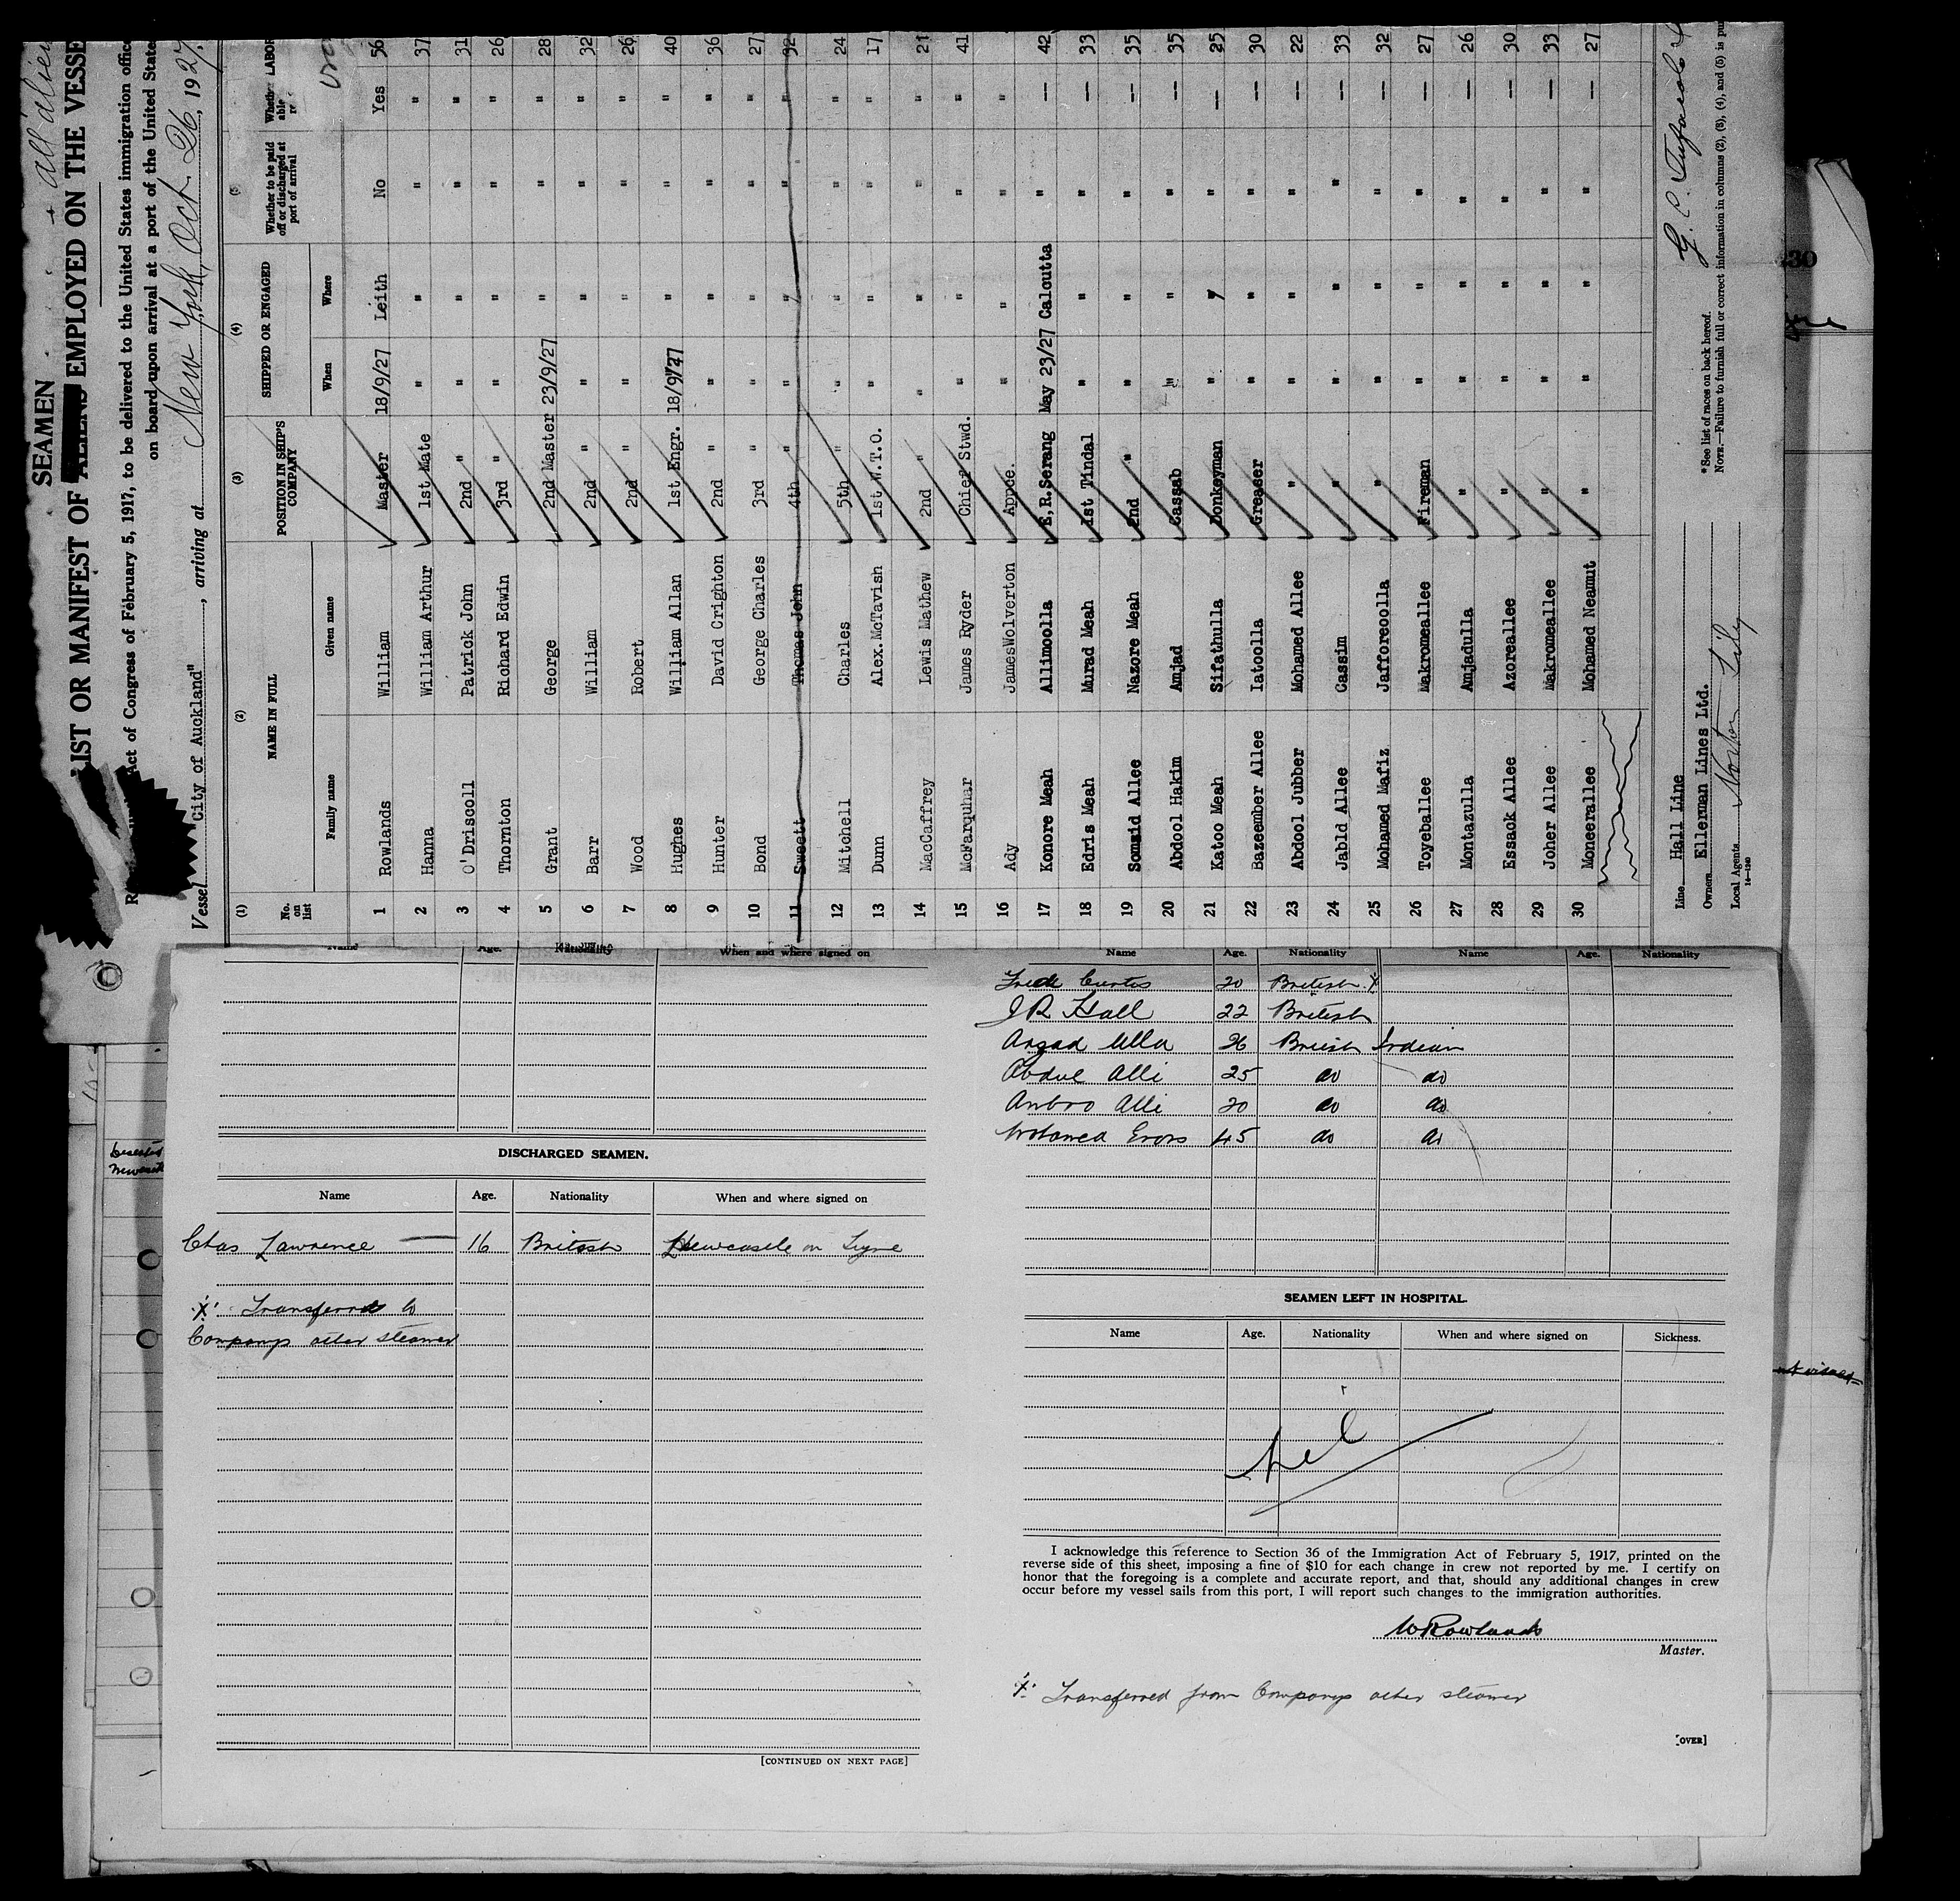 SEAMEN
LIST OR MANIFEST OF ALIENS EMPLOYED ON THE VESSE
Act of Congress of February 5, 1917, to be delivered to the United States immigration offic
on board upon arrival at a port of the United State
Vessel "City of Auckland", arriving at New York, Oct. 26, 1927.
(1) (2) (3) (4)
No. on list NAME IN FULL POSITION IN SHIP'S COMPANY SHIPPED OR ENGAGED Whether to be paid off or discharged at port of arrival
Family name Given name When Where
1 Rowlands William Master 18/9/27 Leith No Yes 56
2 Hanna William Arthur 1st Mate " " " " 37
3 O'Driscoll Patrick John 2nd " " " " " 31
4 Thornton Richard Edwin 3rd " " " " " 26
5 Grant George 2nd Master 23/9/27 " " " 28
6 Barr William 2nd " " " " " 32
7 Wood Robert 2nd " " " " " 26
8 Hughes William Allan 1st Engr. 18/9/27 " " " 40
9 Hunter David Crighton 2nd " " " " " 36
10 Bond George Charles 3rd " " " " " 27
11 Sweett Thomas John 4th " " " " " 32
12 Mitchell Charles 5th " " " " " 24
13 Dunn Alex. McTavish 1st W.T.O. " " " " 17
14 MacCaffrey Lewis Mathew 2nd " " " " " 21
15 McFarquhar James Ryder Chief Stwd. " " " " 41
16 Ady James Wolverton Appce. " " " "
17 Konore Meah Allimoolla E.R.Serang May 23/27 Calcutta " — 42
18 Edris Meah Murad Meah 1st Tindal " " " — 33
19 Somaid Allee Nazore Meah 2nd " " " " — 35
20 Abdool Hakim Amjad Cassab " " " — 35
21 Katoo Meah Sifathulla Donkeyman " " " — 25
22 Bazeember Allee Iatoolla Greaser " " " — 30
23 Abdool Jubber Mohamed Allee " " " " — 22
24 Jabld Allee Cassim " " " " — 33
25 Mohamed Mafiz Jafforeoolla " " " " — 32
26 Toyeballee Makromeallee Fireman " " " — 27
27 Montazulla Amjadulla " " " " — 26
28 Essack Allee Azoreallee " " " " — 30
29 Joher Allee Makromeallee " " " " — 33
30 Moneerallee Mohamed Neamut " " " " — 27
Line Hall Line
Owners Ellerman Lines Ltd.
Local Agents Norton Lilly
14—1240
*See list of races on back hereof.
NOTE.—Failure to furnish full or correct information in columns (2), (3), (4), and (5) is pu
Name Age. Nationality When and where signed on
DISCHARGED SEAMEN.
Name Age. Nationality When and where signed on
Chas Lawrence 16 British Newcastle on Tyne
X Transferred to
Companys other steamer
[CONTINUED ON NEXT PAGE]
Name Age. Nationality Name Age. Nationality
Fredk Curtis 20 British X
J R Hall 22 British
Angad Ulla 26 British Indian
Abdul Alli 25 do do
Anbro Alli 20 do do
45 do do
SEAMEN LEFT IN HOSPITAL.
Name Age. Nationality When and where signed on Sickness.
nil
I acknowledge this reference to Section 36 of the Immigration Act of February 5, 1917, printed on the
reverse side of this sheet, imposing a fine of $10 for each change in crew not reported by me. I certify on
honor that the foregoing is a complete and accurate report, and that, should any additional changes in crew
occur before my vessel sails from this port, I will report such changes to the immigration authorities.
W Rowlands
Master.
X Transferred from Companys other steamer
[OVER]